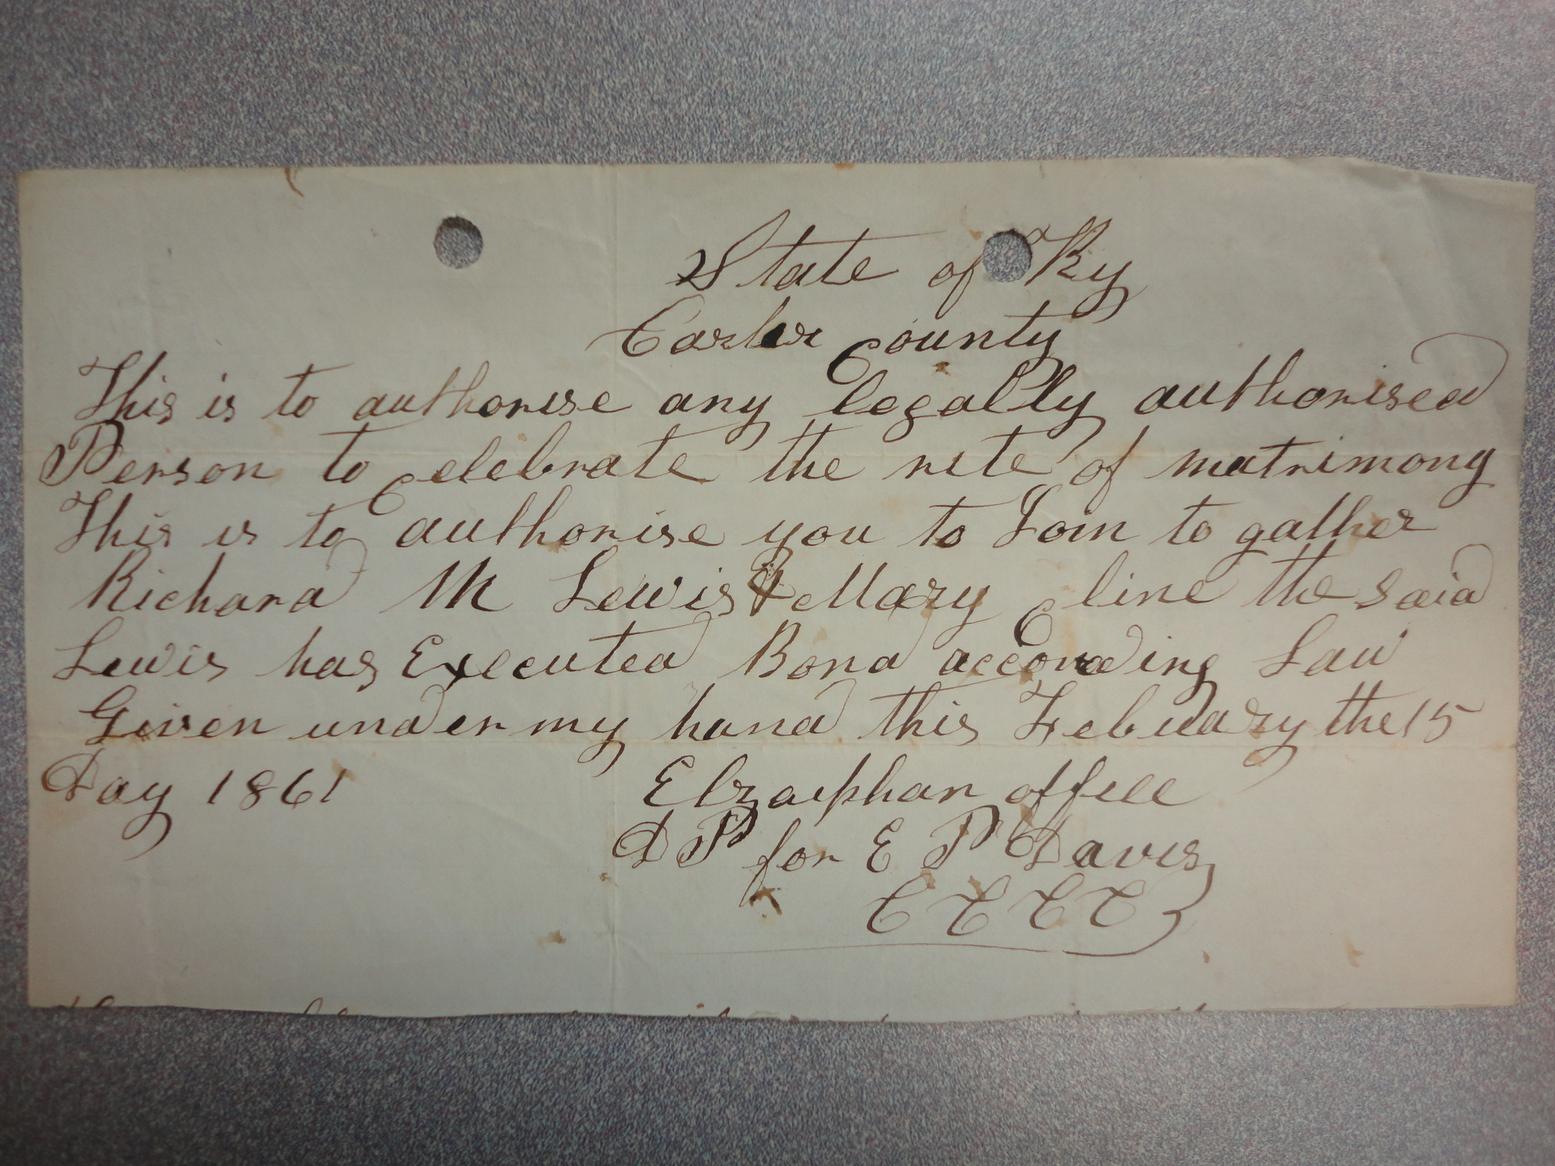 State of Ky
Carter County
This is to authorise any legally authorised
Person to Celebrate the rite of matrimony
This is to authorise you to Join to gather
Richard M Lewis & Mary Cline the said
Lewis has Executed Bond according Law
Given under my hand this Febuary the 15
Day 1861 Elzaphan offill
D P for E P Davis
C C C C